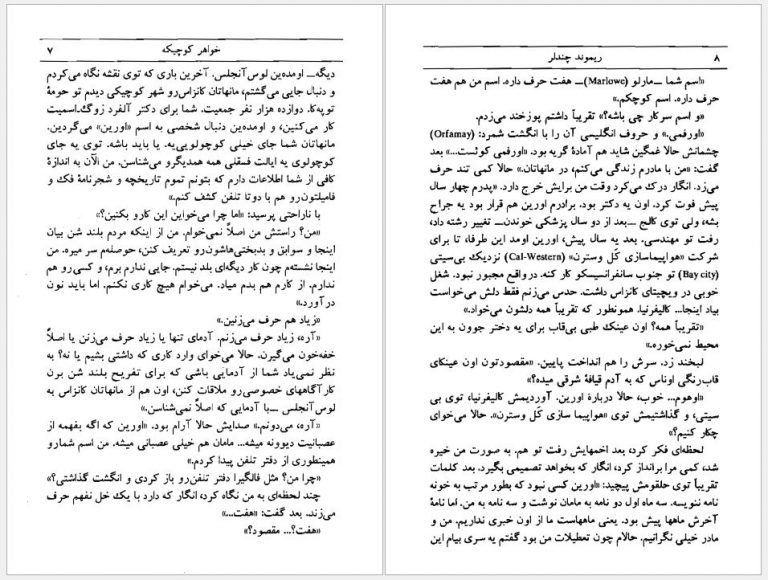 خواهر کوچیکه ۷
دیگه ــ اومده‌ین لوس‌آنجلس. آخرین باری که توی نقشه نگاه می‌کردم
و دنبال جایی می‌گشتم، مانهاتان کانزاس‌رو شهر کوچیکی دیدم تو حومهٔ
توپه‌کا. دوازده هزار نفر جمعیت. شما برای دکتر آلفرد زوگ‌اسمیت
کار می‌کنین، و اومده‌ین دنبال شخصی به اسم «اورین» می‌گردین.
مانهاتان شما جای خیلی کوچولویی‌یه. یا باید باشه. توی یه جای
کوچولوی یه ایالت فسقلی همه همدیگرو می‌شناسن. من الآن به اندازهٔ
کافی از شما اطلاعات دارم که بتونم تموم تاریخچه و شجرنامهٔ فک و
فامیلتون‌رو هم با دوتا تلفن کشف کنم.»
با ناراحتی پرسید: «اما چرا می‌خواین این کارو بکنین؟»
«من؟ راستش من اصلاً نمی‌خوام. من از اینکه مردم بلند شن بیان
اینجا و سوابق و بدبختی‌هاشون‌رو تعریف کنن، حوصله‌م سر میره. من
اینجا نشسته‌م چون کار دیگه‌ای بلد نیستم. جایی ندارم برم، و کسی‌رو هم
ندارم. از کارم هم بدم میاد. می‌خوام هیچ کاری نکنم. اما باید نون
درآورد.»
«زیاد هم حرف می‌زنین.»
«آره، زیاد حرف می‌زنم. آدمای تنها یا زیاد حرف می‌زنن یا اصلاً
خفه‌خون می‌گیرن. حالا می‌خوای وارد کاری که داشتی بشیم یا نه؟ به
نظر نمی‌یاد شما از آدمایی باشی که برای تفریح بلند شن برن
کارآگاههای خصوصی‌رو ملاقات کنن، اون هم از مانهاتان کانزاس به
لوس‌آنجلس ــ با آدمایی که اصلاً نمی‌شناسن.»
«آره، می‌دونم.» صدایش حالا آرام بود. «اورین که اگه بفهمه از
عصبانیت دیوونه میشه... مامان هم خیلی عصبانی میشه. من اسم شمارو
همینطوری از دفتر تلفن پیدا کردم.»
«چرا من؟ مثل فالگیرا دفتر تلفن‌رو باز کردی و انگشت گذاشتی؟»
چند لحظه‌ای به من نگاه کرد، انگار که دارد با یک خل نفهم حرف
می‌زند. بعد گفت: «هفت...»
«هفت؟... مقصود؟»
۸ ریموند چندلر
«اسم شما ــ مارلو (Marlowe) ــ هفت حرف داره. اسم من هم هفت
حرف داره. اسم کوچکم.»
«و اسم سرکار چی باشه؟» تقریباً داشتم پوزخند می‌زدم.
«اورفمی.» و حروف انگلیسی آن را با انگشت شمرد: (Orfamay)
چشمانش حالا غمگین شاید هم آمادهٔ گریه بود. «اورفمی کوئست...» بعد
گفت: «من با مادرم زندگی می‌کنم، در مانهاتان.» حالا کمی تند حرف
می‌زد. انگار درک می‌کرد وقت من برایش خرج دارد. «پدرم چهار سال
پیش فوت کرد. اون یه دکتر بود. برادرم اورین هم قرار بود یه جراح
بشه، ولی توی کالج ــ بعد از دو سال پزشکی خوندن ــ تغییر رشته داد،
رفت تو مهندسی. بعد یه سال پیش، اورین اومد این طرفا، تا برای
شرکت «هواپیماسازی کَل وسترن» (Cal-Western) نزدیک بی‌سیتی
(Bay city) تو جنوب سانفرانسیسکو کار کنه. درواقع مجبور نبود. شغل
خوبی در ویچیتای کانزاس داشت. حدس می‌زنم فقط دلش می‌خواست
بیاد اینجا... کالیفرنیا. همونطور که تقریباً همه دلشون می‌خواد.»
«تقریباً همه؟ اون عینک طبی بی‌قاب برای یه دختر جوون به این
محیط نمی‌خوره.»
لبخند زد. سرش را هم انداخت پایین. «مقصودتون اون عینکای
قاب‌رنگی اوناس که به آدم قیافهٔ شرقی میده؟»
«اوهوم... خوب، حالا دربارهٔ اورین. آوردیمش کالیفرنیا، توی بی
سیتی، و گذاشتیمش توی «هواپیما سازی کَل وسترن.» حالا می‌خوای
چکار کنیم؟»
لحظه‌ای فکر کرد، بعد اخمهایش رفت تو هم. به صورت من خیره
شد، کمی مرا برانداز کرد، انگار که بخواهد تصمیمی بگیرد. بعد کلمات
تقریباً توی حلقومش پیچید: «اورین کسی نبود که بطور مرتب به خونه
نامه ننویسه. سه ماه اول دو نامه به مامان نوشت و سه نامه به من. اما نامهٔ
آخرش ماهها پیش بود. یعنی ماههاست ما از اون خبری نداریم. من و
مادر خیلی نگرانیم. حالام چون تعطیلات من بود گفتم یه سری بیام این